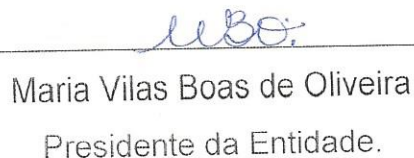 MBO.
Maria Vilas Boas de Oliveira
Presidente da Entidade.